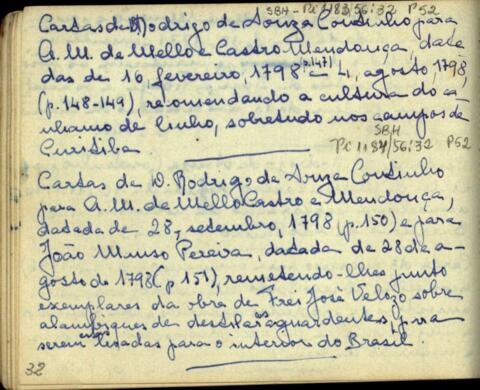 SBH - Pi 1183/56:32 P52
Cartas de D Rodrigo de Souza Coutinho para
A. M. de Mello e Castro Mendonça, data
das de 16, fevereiro, 1798 (p. 147) e 4, agosto, 1798,
(p. 148-149), recomendando a cultura do câ
nhamo de linho, sobretudo nos campos de
Curitiba.
SBH
Pi 1184/56:32 P52
Cartas de D. Rodrigo de Souza Coutinho
para A. M. de Mello Castro e Mendonça,
datada de 28, setembro, 1798 (p. 150) e para
João Manso Pereira, datada de 28 de a-
gosto de 1798 (p 151), remetendo-lhes junto
exemplares da obra de Frei José Velozo sobre
alambiques de destilar as aguardentes, para
serem usadas para o interior do Brasil.
32